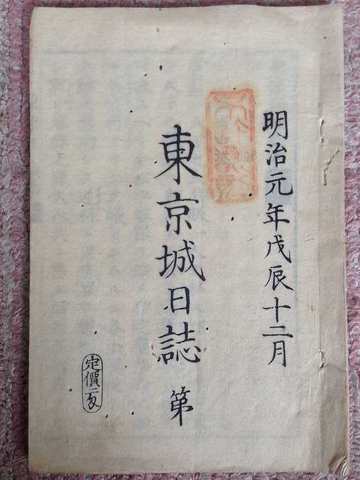 明治元年戊辰十二月
東京城日誌 第
定價二匁